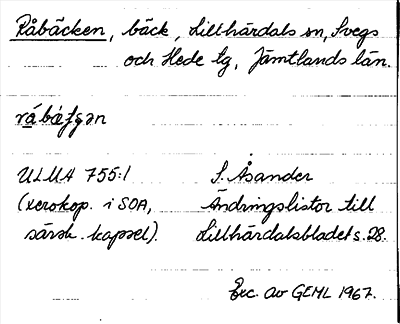 Råbäcken, bäck, Lillhärdals sn, Svegs
och Hede tg, Jämtlands län.
råbäʃʃən
ULMA 755:1 S. Åsander
(xerokop. i SOA, Ändringslistor till
särsk. kapsel). Lillhärdalsbladet s. 28.
Exc. av GEML 1967.